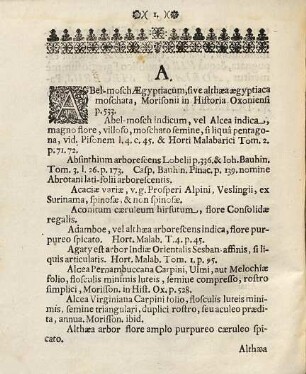 (1.)
A.
ABel-mosch Ægyptiacum, sive althæa ægyptiaca
moschata, Morisonii in Historia Oxoniensi
p. 533.
Abel-mosch indicum, vel Alcea indica,
magno flore, villoso, moschato semine, si liquâ pentago-
na, vid. Pisonem l. 4. c. 45. & Horti Malabarici Tom. 2.
p. 71. 72.
Absinthium arborescens Lobelii p. 336. & Joh. Bauhin.
Tom. 3. l. 26. p. 173. Casp. Bauhin. Pinac. p. 139. nomine
Abrotani lati-folii arborescentis.
Acaciæ variæ, v. g. Prosperi Alpini, Veslingii, ex
Surinama, spinosæ, & non spinosæ.
Aconitum cæruleum hirsutum, flore Consolidæ
regalis.
Adamboe, vel althæa arborescens indica, flore pur-
pureo spicato. Hort. Malab. T. 4. p. 45.
Agaty est arbor Indiæ Orientalis Sesban-affinis, si li-
quis articularis. Hort. Malab. Tom. 1. p. 95.
Alcea Pernambuccana Carpini, Ulmi, aut Melochiæ
folio, flosculis minimis luteis, semine compresso, rostro
simplici, Morisson. in Hist. Ox. p. 528.
Alcea Virginiana Carpini folio, flosculis luteis mini-
mis. semine triangulari, duplici rostro, seu aculeo prædi-
ta, annua. Morisson. ibid.
Althæa arbor flore amplo purpureo cæruleo spi-
cato.
Althæa